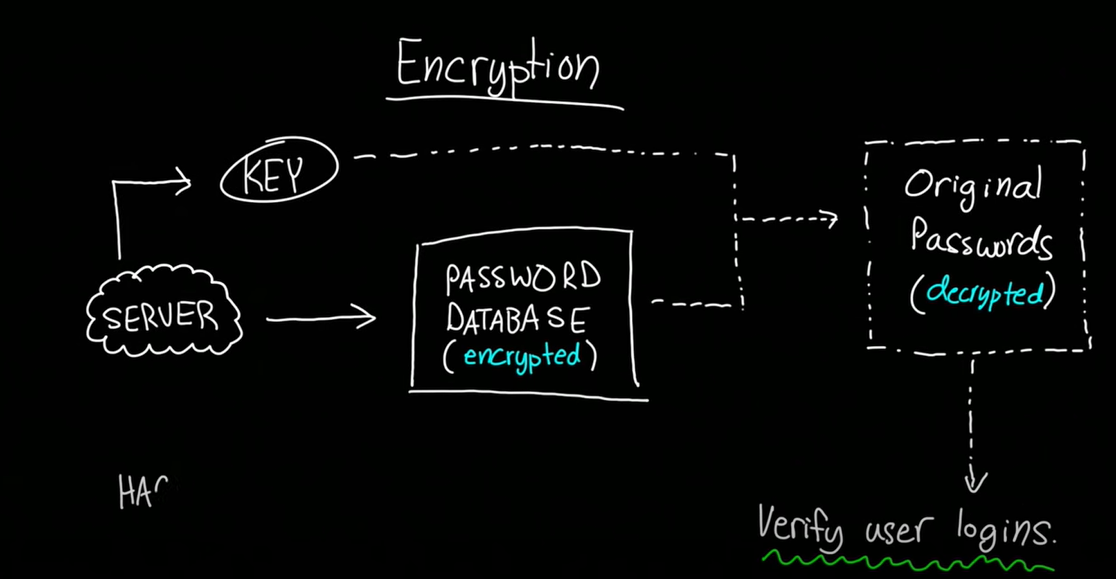 Encryption
KEY
SERVER
PASSWORD
DATABASE
(encrypted)
Original
Passwords
(decrypted)
Verify user logins.